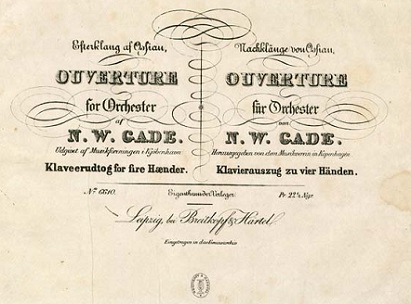 Efterklang af Ossian,
OUVERTURE
for Orchester
af
N. W. GADE.
Udgivet af Musikforeningen i Kjøbenhavn
Klaveerudtog for fire Hænder.
Nachklänge von Ossian,
OUVERTURE
für Orchester
von
N. W. GADE.
Herausgegeben von dem Musikverein in Kopenhagen
Klavierauszug zu vier Händen.
Eigenthum der Verleger.
Leipzig, bei Breitkopf & Härtel
Eingetragen in das Vereinsarchiv